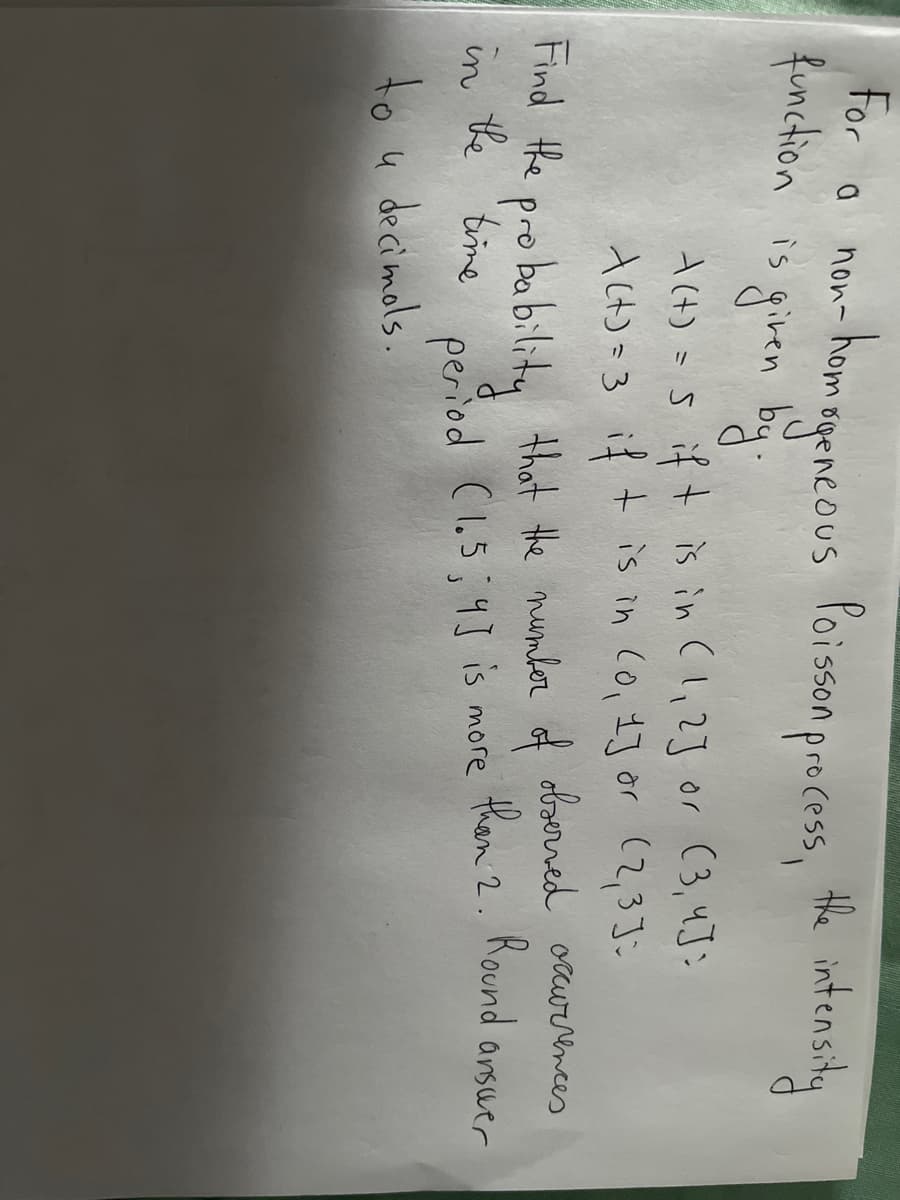 For a non-homogeneous Poisson process, the intensity
function is given by:
λ(t) = 5 if t is in (1,2] or (3,4];
λ(t) = 3 if t is in (0,1] or (2,3];
Find the probability that the number of observed occurrences
in the time period (1.5; 4] is more than 2. Round answer
to 4 decimals.